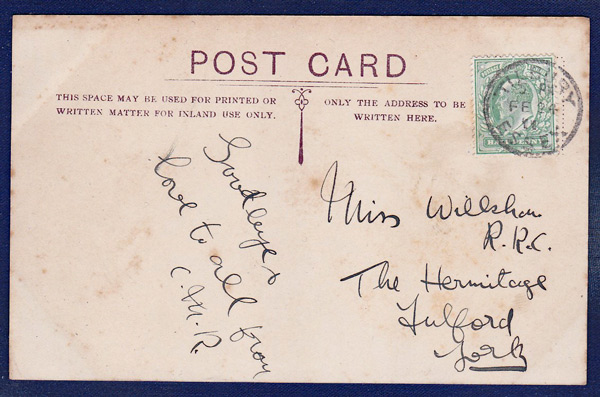 POST CARD
THIS SPACE MAY BE USED FOR PRINTED OR
WRITTEN MATTER FOR INLAND USE ONLY.
ONLY THE ADDRESS TO BE
WRITTEN HERE.
Goodbye &
love to all from
C.M.R.
Miss Willshaw
R.R.C.
The Hermitage
Fulford
York
HALFPENNY
FE